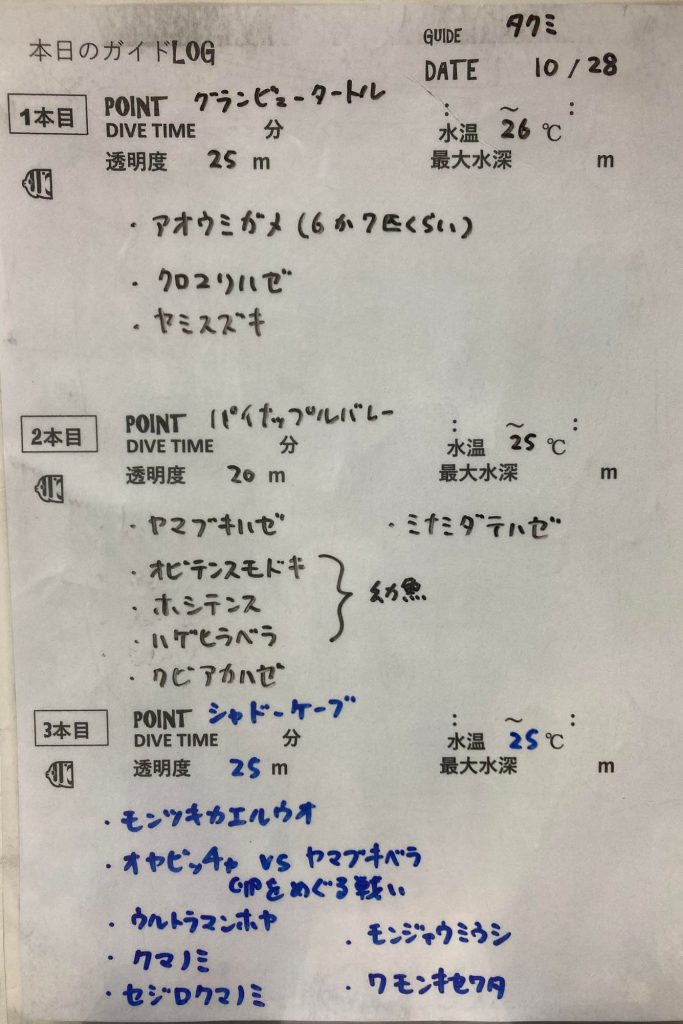 本日のガイドLOG
GUIDE タクミ
DATE 10/28
1本目 POINT グランビュータートル
DIVE TIME 分 : ～ :
水温 26 ℃
透明度 25 m 最大水深 m
・アオウミガメ (6か7匹くらい)
・クロユリハゼ
・ヤミスズキ
2本目 POINT パイナップルバレー
DIVE TIME 分 : ～ :
水温 25 ℃
透明度 20 m 最大水深 m
・ヤマブキハゼ ・ミナミダテハゼ
・オビテンスモドキ
・ホシテンス 幼魚
・ハゲヒラベラ
・クビアカハゼ
3本目 POINT シャドーケーブ
DIVE TIME 分 : ～ :
水温 25 ℃
透明度 25 m 最大水深 m
・モンツキカエルウオ
・オヤビッチャ vs ヤマブキベラ
をめぐる戦い
・ウルトラマンホヤ ・モンジャウミウシ
・クマノミ
・セジロクマノミ ・ワモンキセワタ